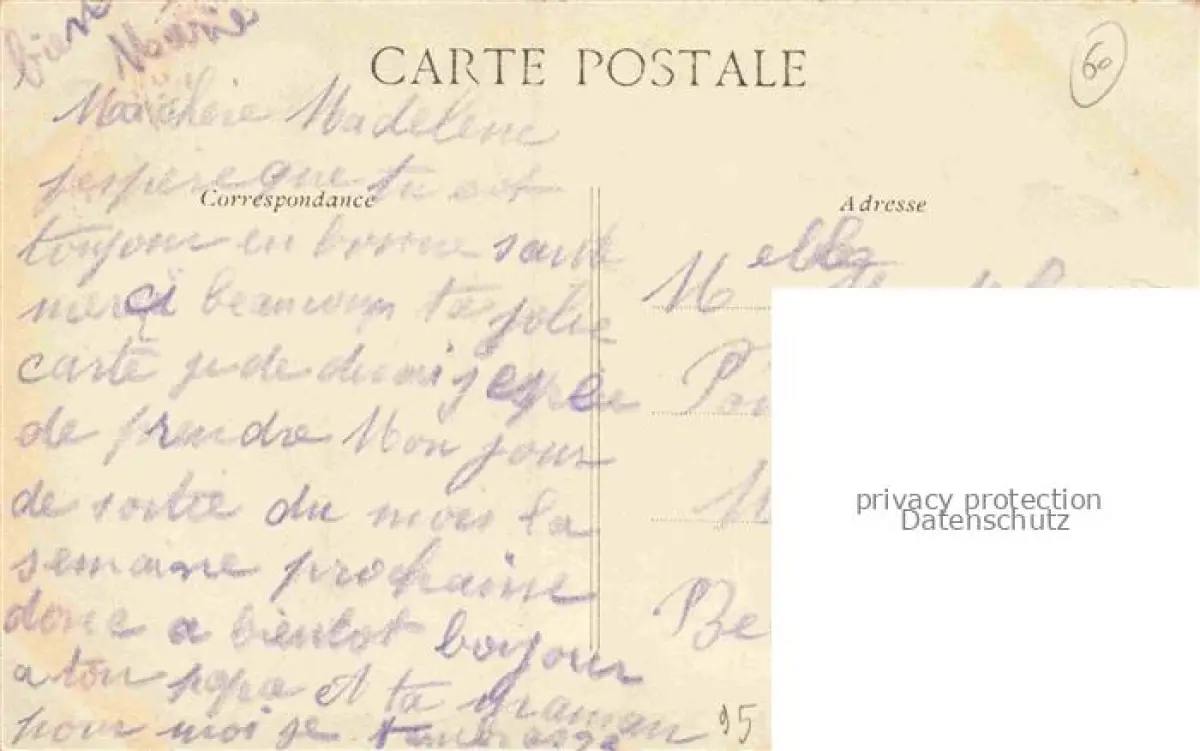 bien
Marie
CARTE POSTALE
60
Ma chère Madelene
jespere que tu est
Correspondance
Adresse
toujour en bonne sante
merci beaucoup ta jolie
carte je de
de prendre Mon jour
de sortie du mois la
semaine prochaine
donc a bientot bonjour
a ton papa et ta maman
pour moi je tembrasse
95
Melle
Be
privacy protection
Datenschutz